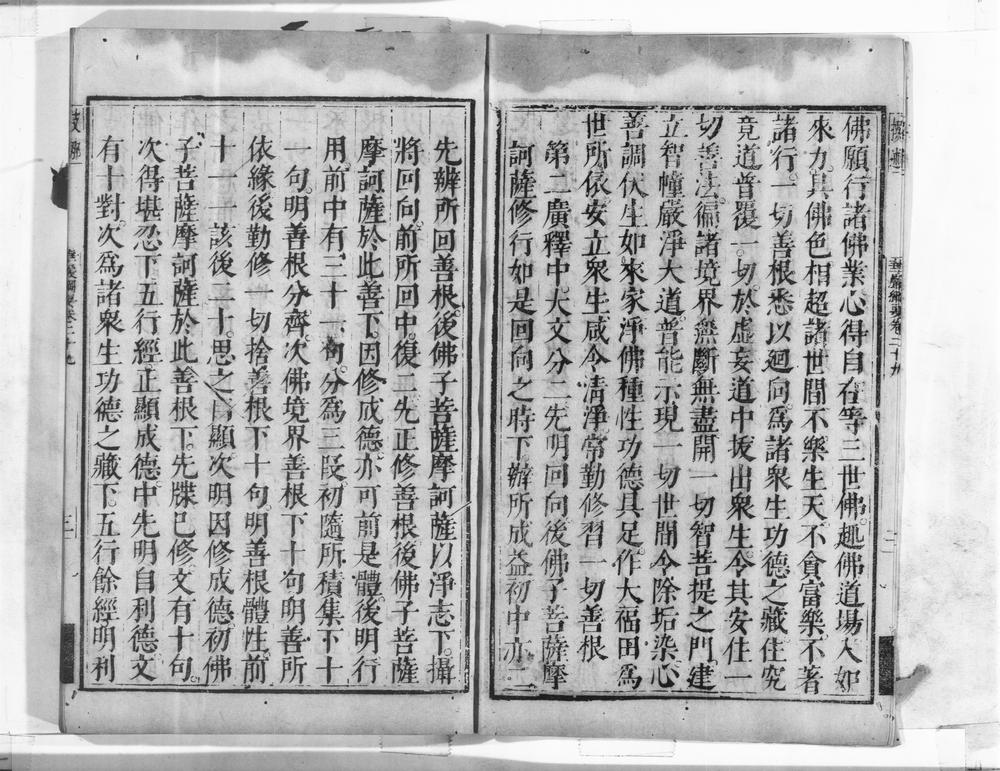 佛願行諸佛業心得自在等三世佛趣佛道場入如
來力具佛色相超諸世間不樂生天不貪富樂不著
諸行一切善根悉以迴向爲諸衆生功德之藏住究
竟道普覆一切於虛妄道中拔出衆生令其安住一
切善法徧諸境界無斷無盡開一切智菩提之門建
立智幢嚴淨大道普能示現一切世間令除垢染心
善調伏生如來家淨佛種性功德具足作大福田爲
世所依安立衆生咸令清淨常勤修習一切善根
第二廣釋中大文分二先明回向後佛子菩薩摩
訶薩修行如是回向之時下辦所成益初中亦二
先辨所回善根後佛子菩薩摩訶薩以淨志下攝
將回向前所回中復二先正修善根後佛子菩薩
摩訶薩於此善下因修成德亦可前是體後明行
用前中有三十一句分爲三段初隨所積集下十
一句明善根分齊次佛境界善根下十句明善所
依緣後勤修一切捨善根下十句明善根體性前
十一一該後二十思之自顯次明因修成德初佛
子菩薩摩訶薩於此善根下先牒已修文有十句
次得堪忍下五行經正顯成德中先明自利德文
有十對次爲諸衆生功德之藏下五行餘經明利